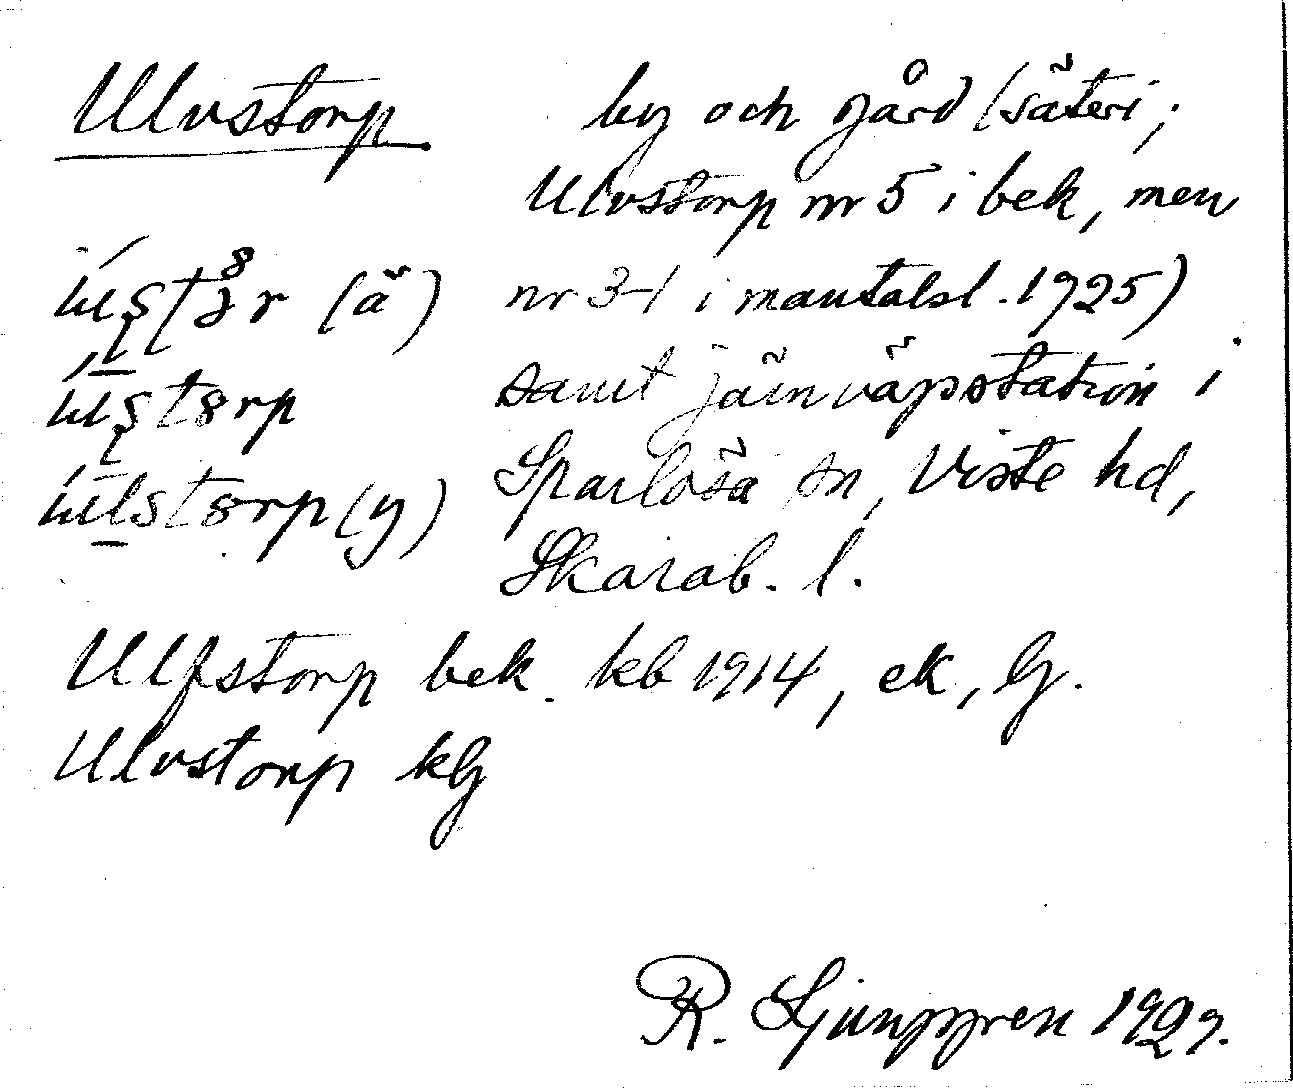 Ulvstorp by och gård (säteri;
Ulvstorp nr 5 i bek, men
(ä) nr 3-1 i mantalsl. 1925)
samt järnvägsstation i
(y) Sparlösa sn, Viste hd,
Skarab. l.
Ulfstorp bek. kb 1914, ek, lj.
Ulvstorp klj
R. Ljunggren 1929.